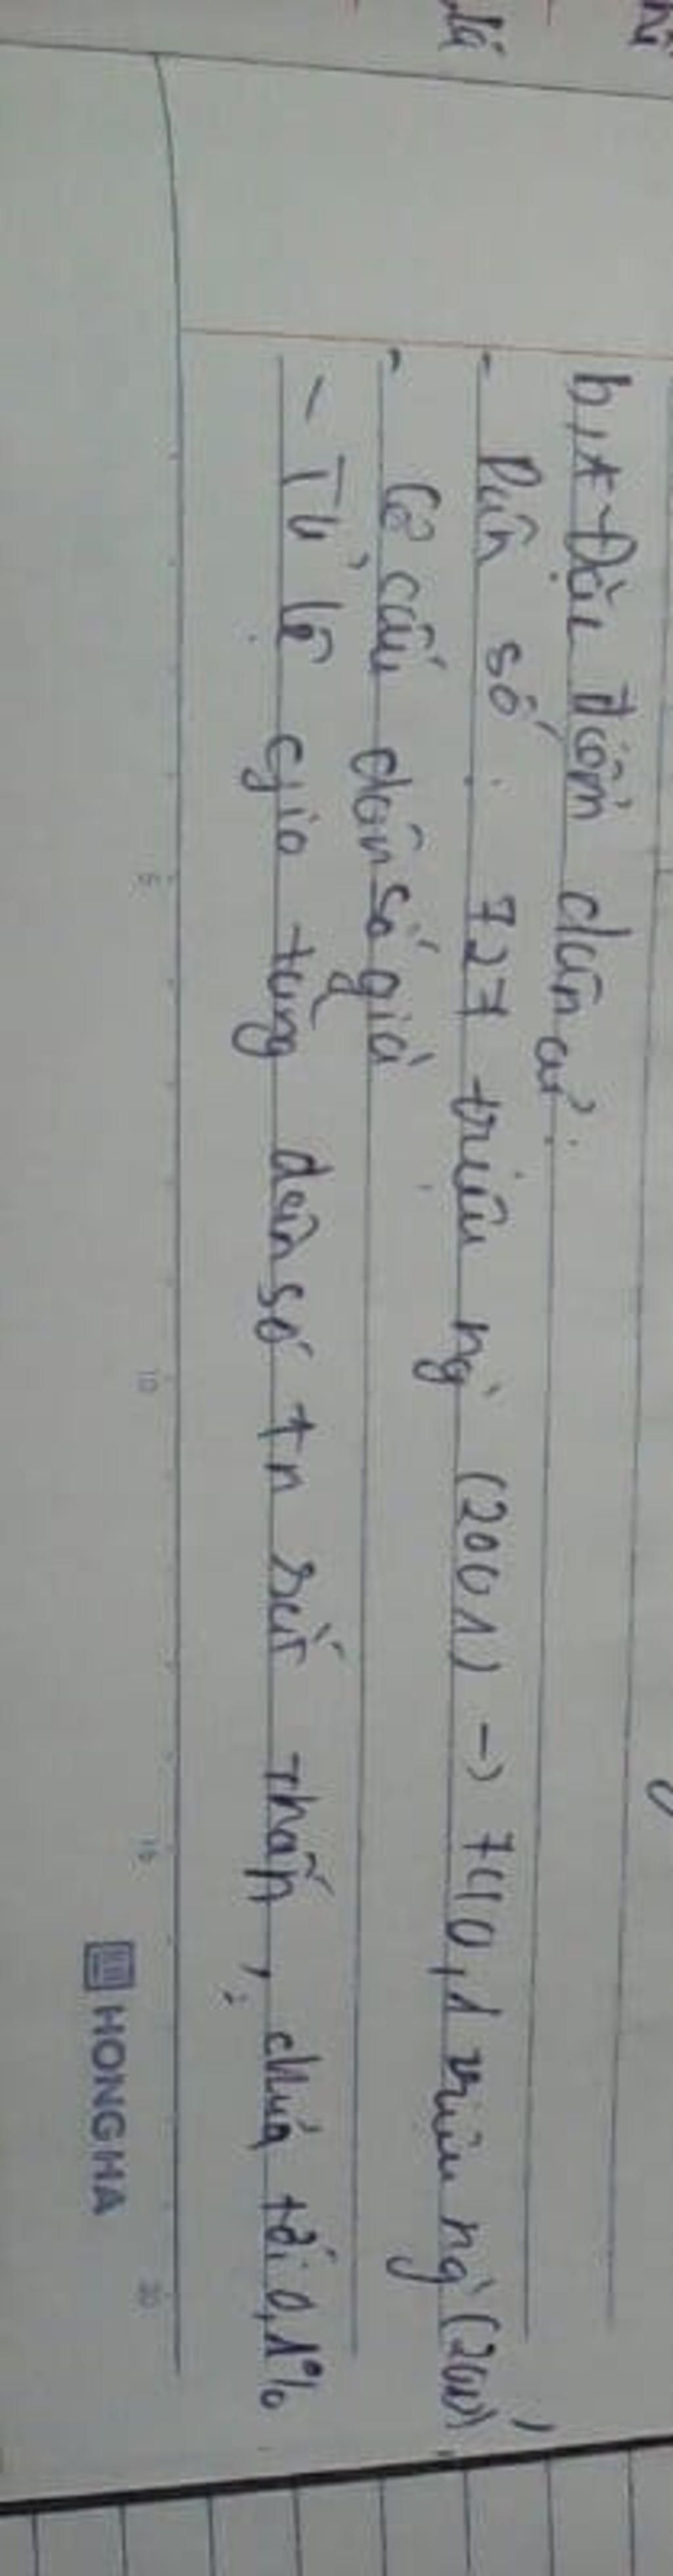 b, * Đặc điểm dân cư:
- Dân số: 727 triệu ng' (2001) -> 740,1 triệu ng' (2010)
- Cơ cấu dân số già
- Tỷ lệ gia tăng dân số tn rất thấp, chưa tới 0,1%
5
10
15
20
HONG HA